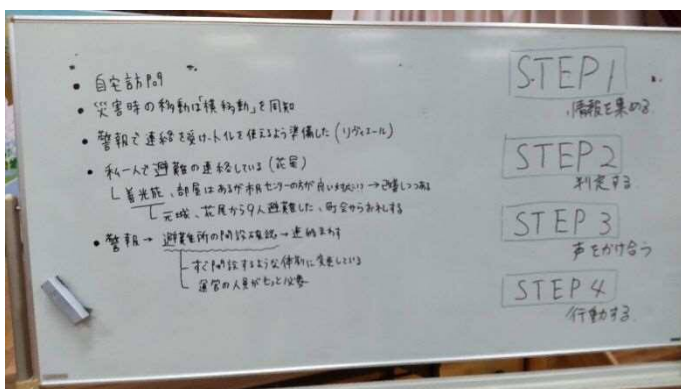 ・自宅訪問
・災害時の移動は「横移動」を周知
・警報で連絡を受け、トイレを使えるよう準備した(リヴィエール)
・私一人で避難の連絡している(花尾)
部屋はあるが市民センターの方が良い→改善しつつある
元城、花尾から9人避難した、町会からお礼する
・警報→避難所の開設確認→連絡まわす
すぐ開設するような体制に変更している
運営の人員がもっと必要
STEP1
情報を集める
STEP2
判定する
STEP3
声をかけ合う
STEP4
行動する